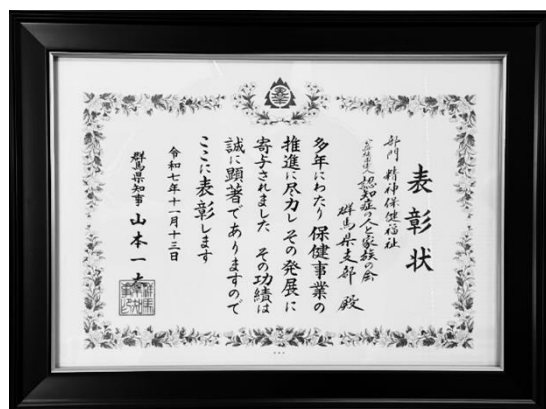 表彰状
部門 精神保健福祉
公益社団法人 認知症の人と家族の会
群馬県支部 殿
多年にわたり 保健事業の
推進に尽力し その発展に
寄与されました その功績は
誠に顕著でありますので
ここに表彰します
令和七年十一月十三日
群馬県知事 山本一太